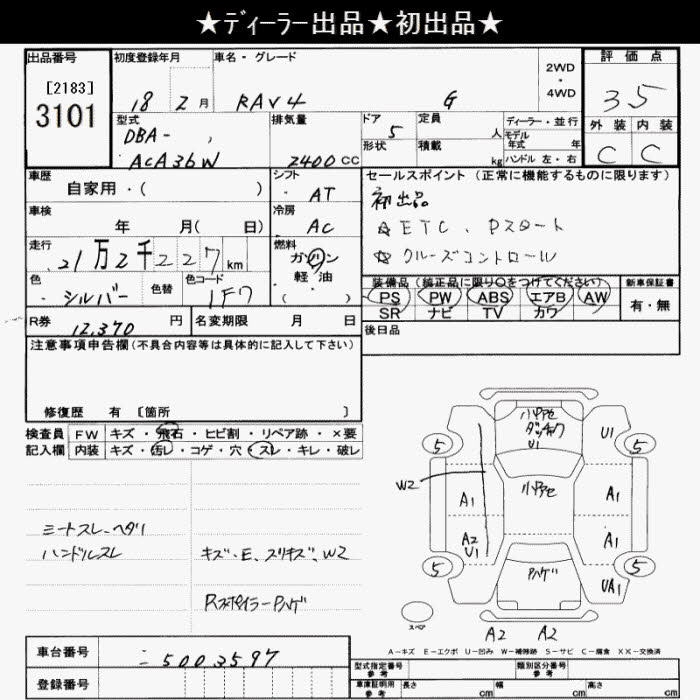 ★ディーラー出品★初出品★
出品番号 初度登録年月 車名・グレード 評価点
[2183]
3101
18 2月 RAV4 G 2WD・4WD 35
型式 排気量 ドア 定員 ディーラー・並行 外装 内装
DBA- 5 人 モデル年式 年
ACA36W 2400cc 形状 積載 kg ハンドル 左・右 C C
車歴 シフト セールスポイント (正常に機能するものに限ります)
自家用・( ) AT 初出品
車検 冷房 ☆ETC、Pスタート
年 月( 日) AC ☆クルーズコントロール
走行 燃料
21万2千227km ガソリン
軽・油
( )
色 色替 色コード 装備品 (純正品に限り○をつけてください) 新車保証書
シルバー 1F7 PS PW ABS エアB AW 有・無
SR ナビ TV カワ
R券 12,370円 名変期限 月 日 後日品
注意事項申告欄(不具合内容等は具体的に記入して下さい)
修復歴 有 [箇所 ]
検査員 FW キズ・飛石・ヒビ割・リペア跡・×要
記入欄 内装 キズ・汚レ・コゲ・穴・スレ・キレ・破レ
シートスレ、ヘタリ
ハンドルスレ キズ・E、スリキズ、W2
RスポイラーPハゲ
小アセ
U1
U1
5 5
W2 小アセ
A1 A1
A2 A1
U1
5 Pハゲ 5
UA1
スペア A2 A2
A-キズ E-エクボ U-凹み W-補修跡 S-サビ C-腐食 XX-交換済
車台番号 5003597
登録番号
型式指定番号 参考 類別区分番号 参考
車庫証明用 参考 長さ cm 幅 cm 高さ cm